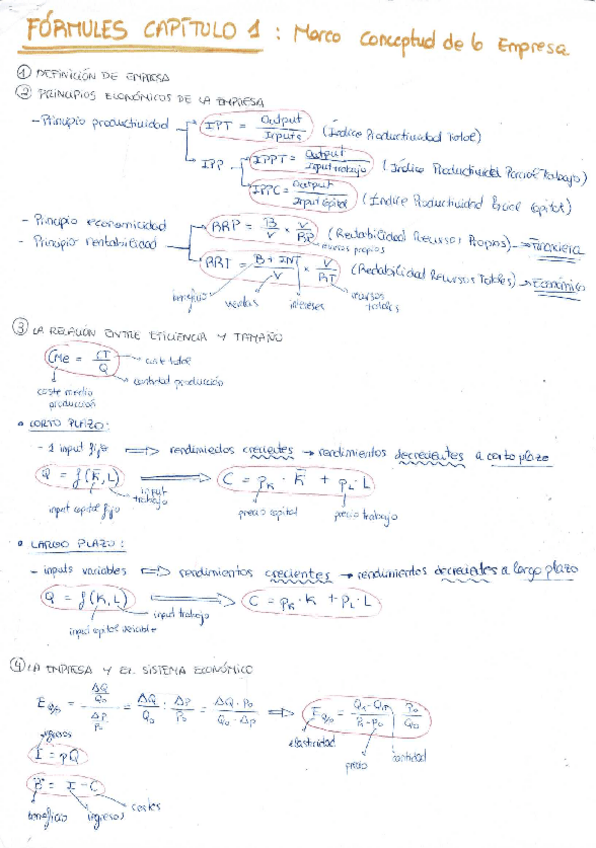 FÓRMULES CAPÍTULO 1 : Marco Conceptual de la Empresa
① DEFINICIÓN DE EMPRESA
② PRINCIPIOS ECONÓMICOS DE LA EMPRESA
- Principio productividad
IPT = Output / Inputs (Índice Productividad Total)
IPP
IPPT = Output / Input trabajo (Índice Productividad Parcial Trabajo)
IPPC = Output / Input Capital (Índice Productividad Parcial Capital)
- Principio economicidad
- Principio rentabilidad
RRP = B/V × V/RP (Redabilidad Recursos Propios) → Financiera
recursos propios
RRT = B + INT / V × V/RT (Redabilidad Recursos Totales) → Económica
beneficio ventas intereses recursos totales
③ LA RELACIÓN ENTRE EFICIENCIA Y TAMAÑO
CMe = CT / Q → coste total
cantidad producción
coste medio producción
• CORTO PLAZO:
- 1 input fijo ⟹ rendimiedos crecientes → rendimientos decrecientes a corto plazo
Q = f(K̄, L) ⟹ C = pK · K̄ + pL · L
input capital fijo input trabajo precio capital precio trabajo
• LARGO PLAZO:
- inputs variables ⟹ rendimientos crecientes → rendimientos decrecientes a largo plazo
Q = f(K, L) ⟹ C = pK · K + pL · L
input trabajo
input capital variable
④ LA EMPRESA Y EL SISTEMA ECONÓMICO
E Q/p = (ΔQ/Q₀) / (Δp/p₀) = ΔQ/Q₀ : Δp/p₀ = ΔQ · p₀ / Q₀ · Δp ⟹ E Q/p = Q₁ - Q₀ / p₁ - p₀ · p₀/Q₀
elasticidad precio cantidad
ingresos
I = pQ
B = I - C
beneficio ingresos costes